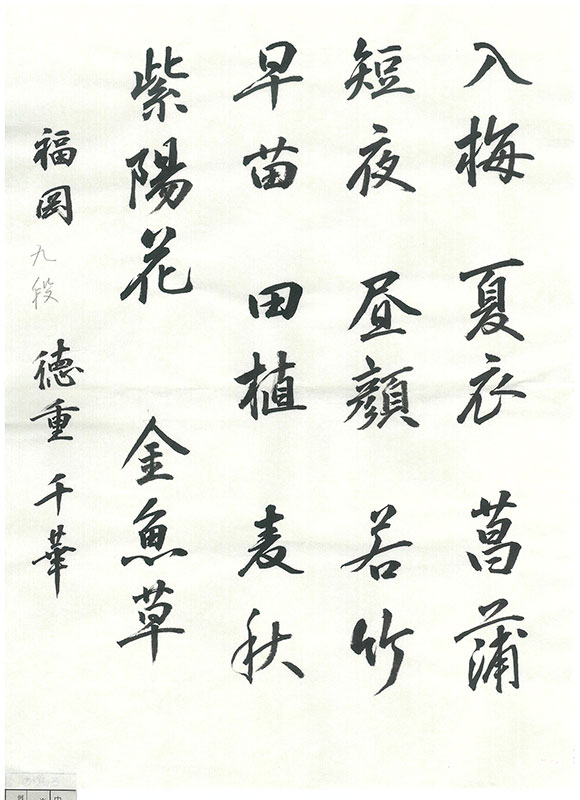 入梅 夏衣 菖蒲
短夜 昼顔 若竹
早苗 田植 麦秋
紫陽花 金魚草
福岡 九段 徳重千華